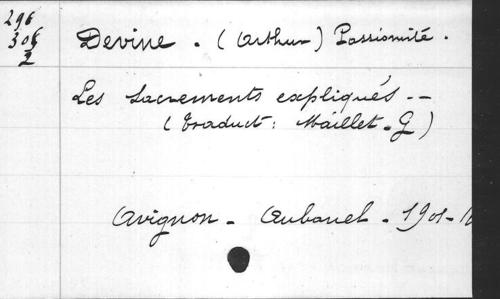 296
306
2
Devine . ( Arthur ) Passioniste .
Les Sacrements expliqués --
( Traduct : Maillet . G )
Avignon - Aubanel - 1901 -